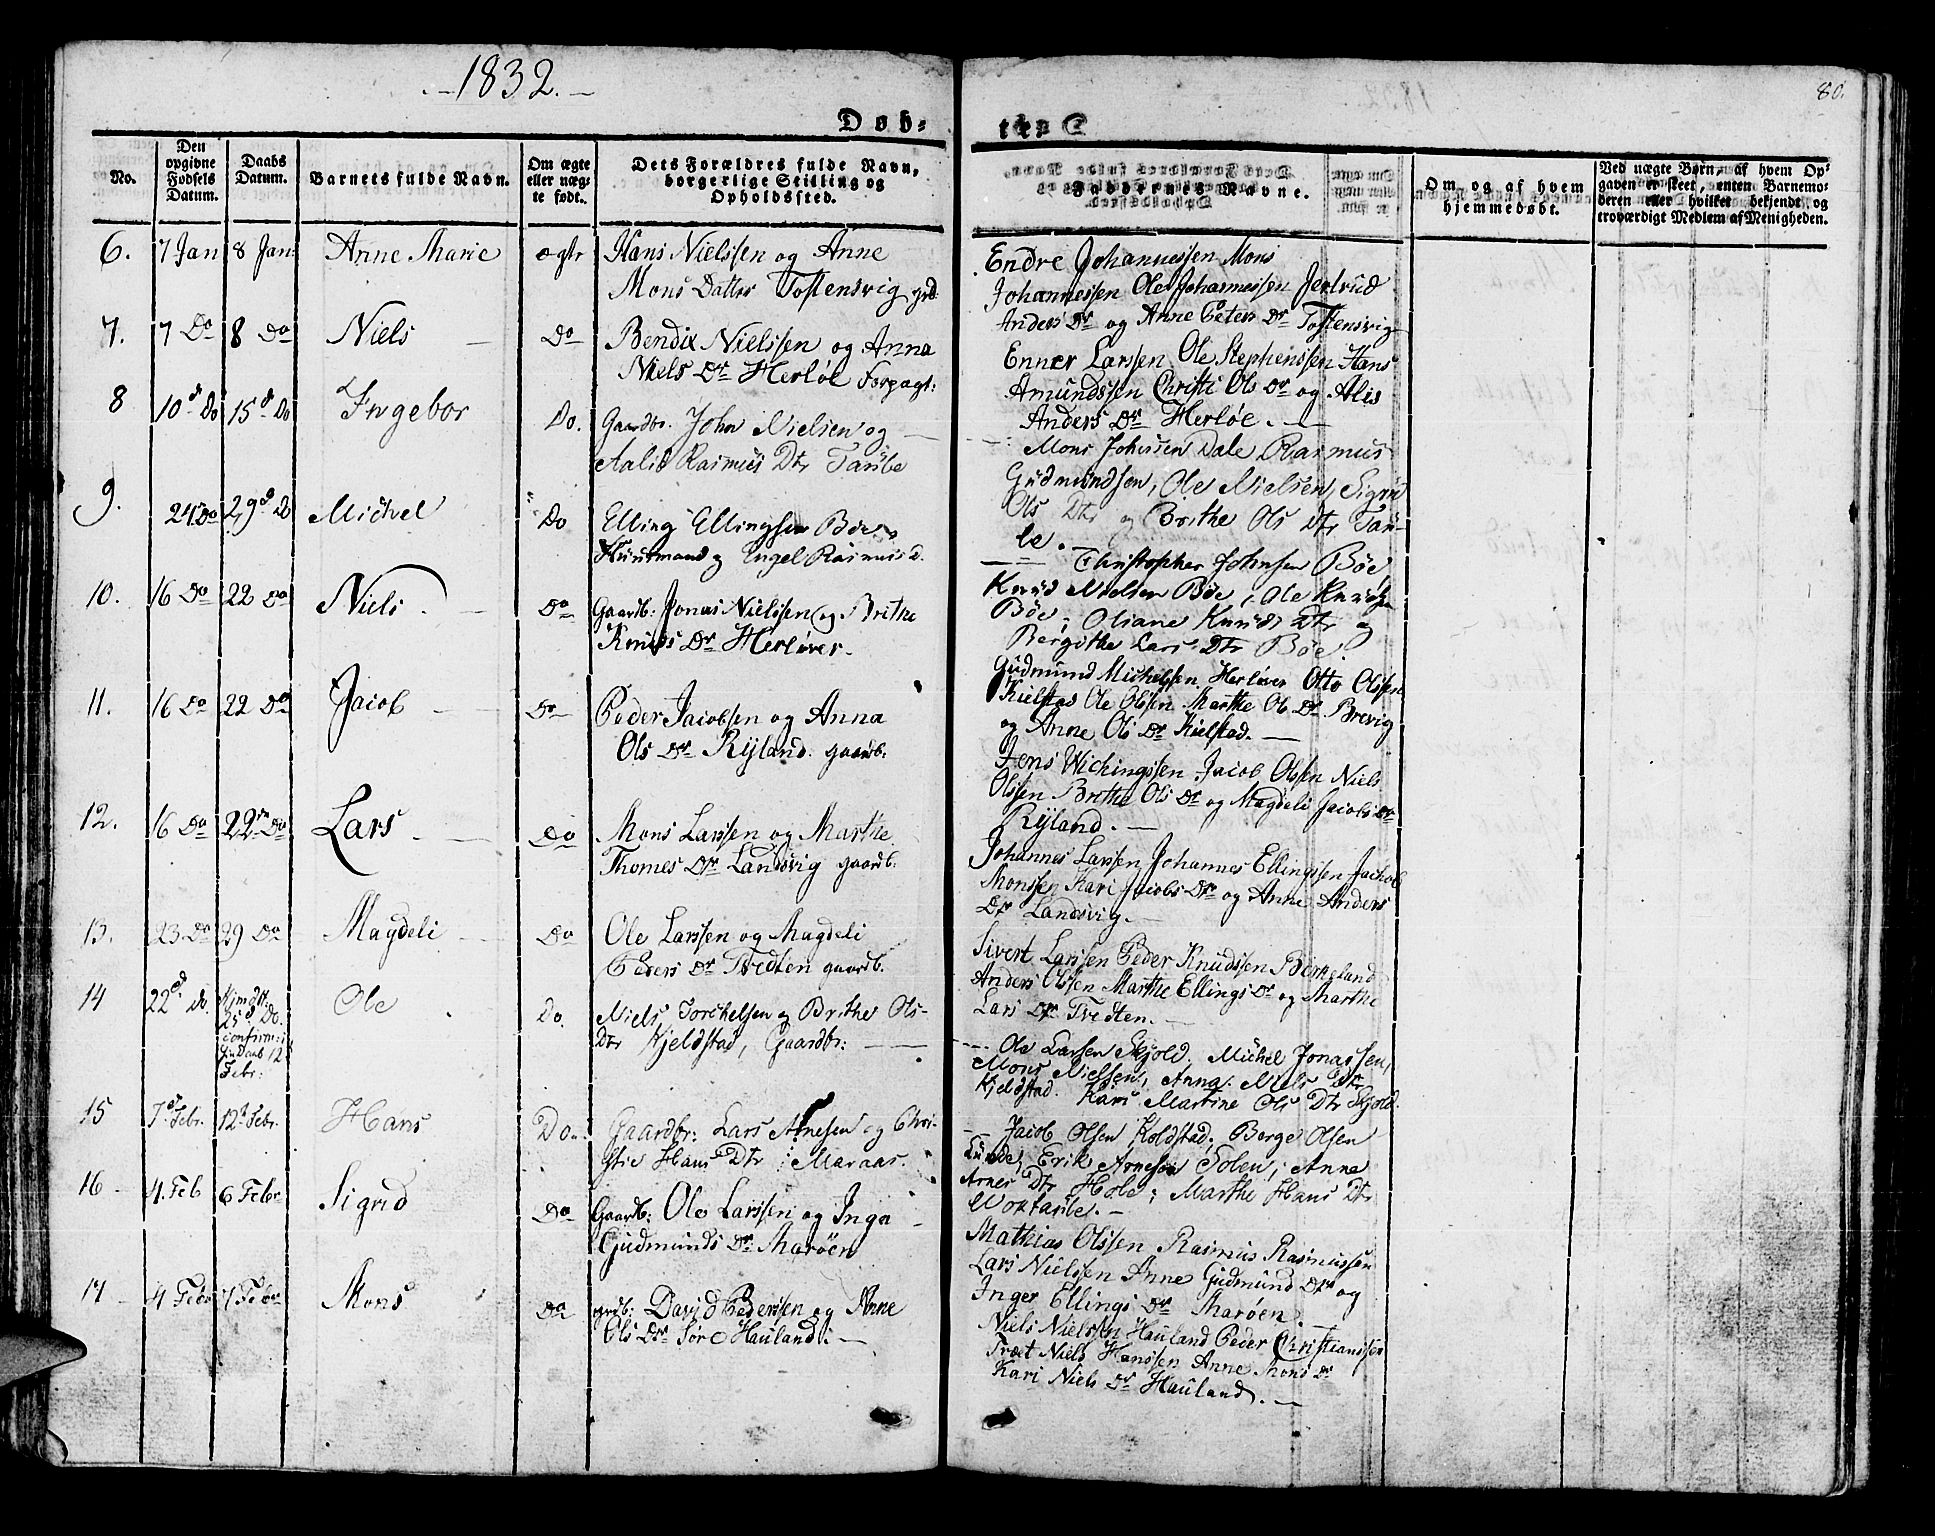 1832.
80.
Døb-
te.
No.
Den opgivne Fødsels Datum.
Daabs Datum.
Barnets fulde Navn.
Om ægte eller uægte født.
Dets Forældres fulde Navn, borgerlige Stilling og Opholdssted.
Faddernes Navne.
Om og af hvem hjemmedøbt.
Ved uægte Børn, af hvem Opgaven er skeet, enten Barnemoderen eller hvilket bekjendt og troværdigt Medlem af Menigheden.
6. 7 Jan 8 Jan: Anne Marie ægte
Hans Nielssen og Anne
Mons Datter Tostensvig grd.
Endre Johannessen Mons
Johannessen Ole Johannessen Jertrud
Anders Dr og Anne Peters Dr Tostensvig
7. 7 Do 8 Do Niels Do
Bendix Nielssen og Anna
Niels Dr Herløe Forpagt:
Enner Larssen Ole Stephenssen Hans
Amundssen Christi Ols Dr og Alis
Anders Dr Herløe.
8 10d Do 15d Do Ingebor Do.
Gaardbr. John Nielsen og
Aalis Rasmus Dtr Taule
Mons Johnsen Dale Rasmus
Gudmundsen, Ole Nielsen, Sigri
Ols Dtr og Brithe Ols Dtr Tau-
le.
9. 24 Do 29d Do Michel Do
Elling Ellingsen Böe
Huusmand og Engel Rasmus d.
Christopher Johnsen Böe
Knud Nielsen Böe, Ole Knudsen
Böe, Oliane Knuds Dtr og
Bergithe Lars Dtr Böe.
10. 16 Do 22 Do Niels. Do
Gaardb: Jonas Nielssen og Brithe
Knuds Dr Herløver.
Gudmund Michelsen Herløver Otto Olssen
Kielstad Ole Olssen Marthe Ols Dr Brevig
og Anne Ols Dr Kielstad.
11. 16 Do 22 Do Jacob Do
Peder Jacobsen og Anna
Ols Dr Ryland. gaardb:
Jens Wichingssen Jacob Olssen Niels
Olssen Brithe Ols Dr og Magdeli Jacobs Dr
Ryland.
12. 16 Do 22 Do Lars Do
Mons Larssen og Marthe
Thomes Dr Landsvig gaardb:
Johannes Larssen Johannes Ellingssen Jachob
Monssen Kari Jacobs Dr og Anne Anders
Dr Landsvig.
13. 23 Do 29 Do Magdeli Do
Ole Larssen og Magdeli
Peders Dr Tvedten gaardb.
Sivert Larssen Peder Knudssen Birkeland
Anders Olssen Marthe Ellings Dr og Marthe
Lars Dr Tvedten.
14 22d Do. Hjmdbt: 25d Do. confirm: i Daab 12 Febr: Ole Do.
Niels Torchelsen og Brithe Ols-
Dtr Kjeldstad, Gaardbr:
Ole Larsen Skjold. Michel Jonassen,
Mons Nielsen, Anna Niels Dtr
Kjeldstad. Kari Martine Ols Dtr Skjold.
15 7d Febr. 12t Febr. Hans Do.
Gaardbr: Lars Arnesen og Chri-
stie Hans Dtr Maraas.
Jacob Olsen Koldstad; Børge Olsen
Lunde, Erik Arnesen Solem; Anne
Arnes Dtr Hole; Marthe Hans Dtr
16 4. Feb 6 Febr Sigrid Do
Gaardb: Ole Larssen og Inga
Gudmunds Dr Marøen
Mathias Olssen Rasmus Rasmussen
Lars Nielssen Anne Gudmund Dr og
Inger Ellings Dr Marøen.
17 4 Febr 7 Febr Mons Do
grdb: David Pedersen og Anne
Ols Dr Søre Hauland:
Niels Nielssen Hauland Peder Christianssen
Træt Niels Hanssen Anne Mons Dr
Kari Niels Dr Hauland.